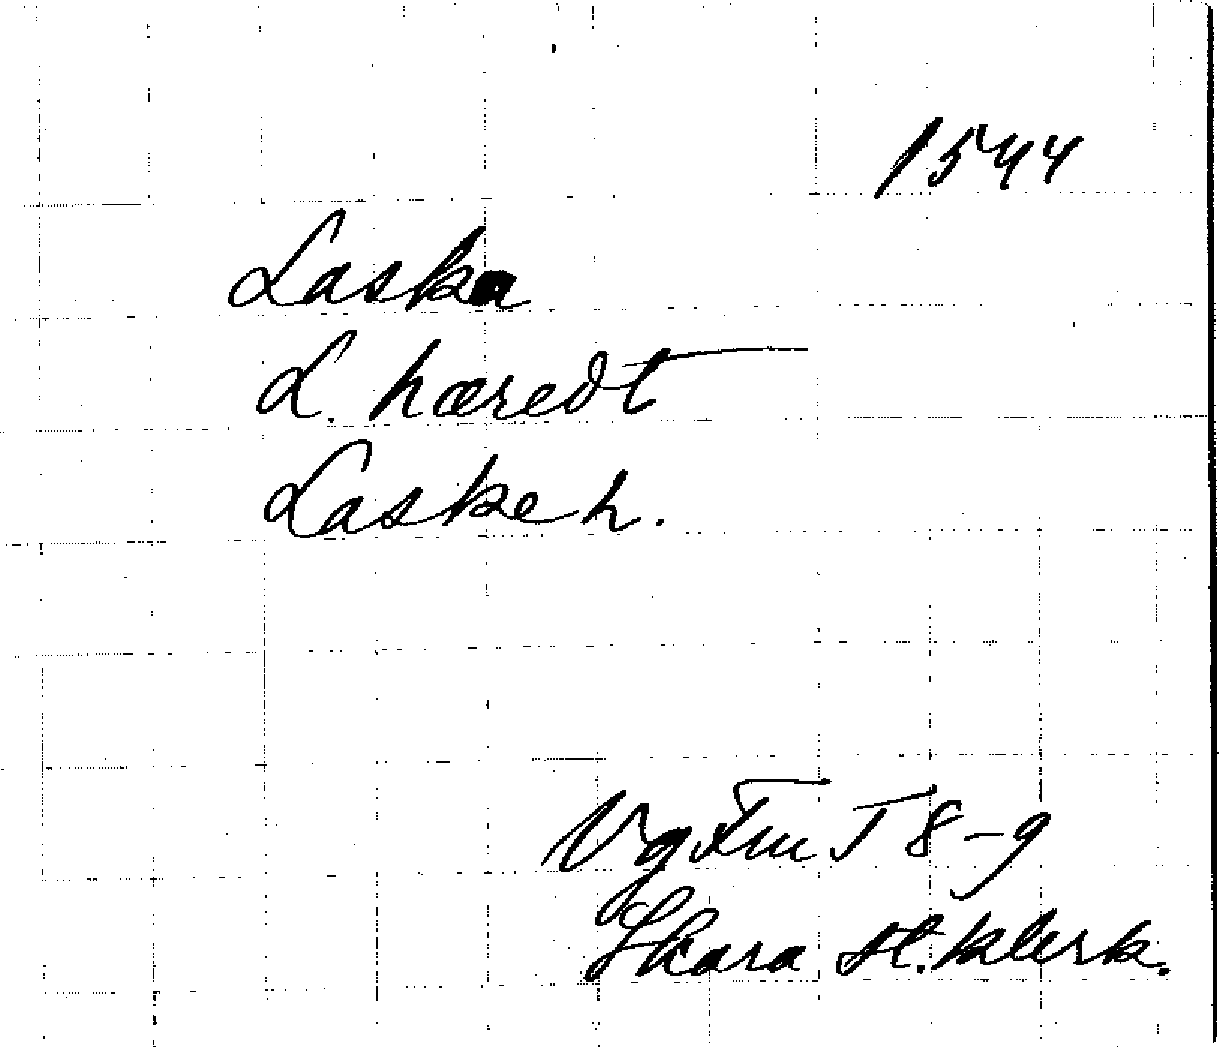 1544
Laska
L. hæredt
Laske h.
Vg Fm I 8-9
Skara st. klerk.